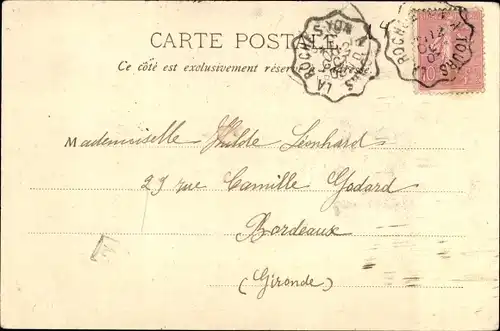 CARTE POSTALE
Ce côté est exclusivement réservé
LA ROCHE S YON A TOURS
LA ROCHE S YON A TOURS
10
Mademoiselle Hilde Léonhard
29 rue Camille Godard
Bordeaux
(Gironde)